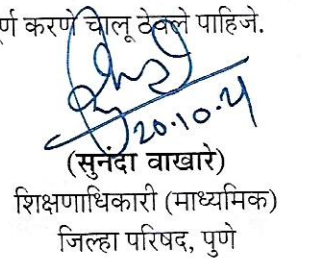 र्ण करणे चालू ठेवले पाहिजे.
20.10.21
(सुनंदा वाखारे)
शिक्षणाधिकारी (माध्यमिक)
जिल्हा परिषद, पुणे